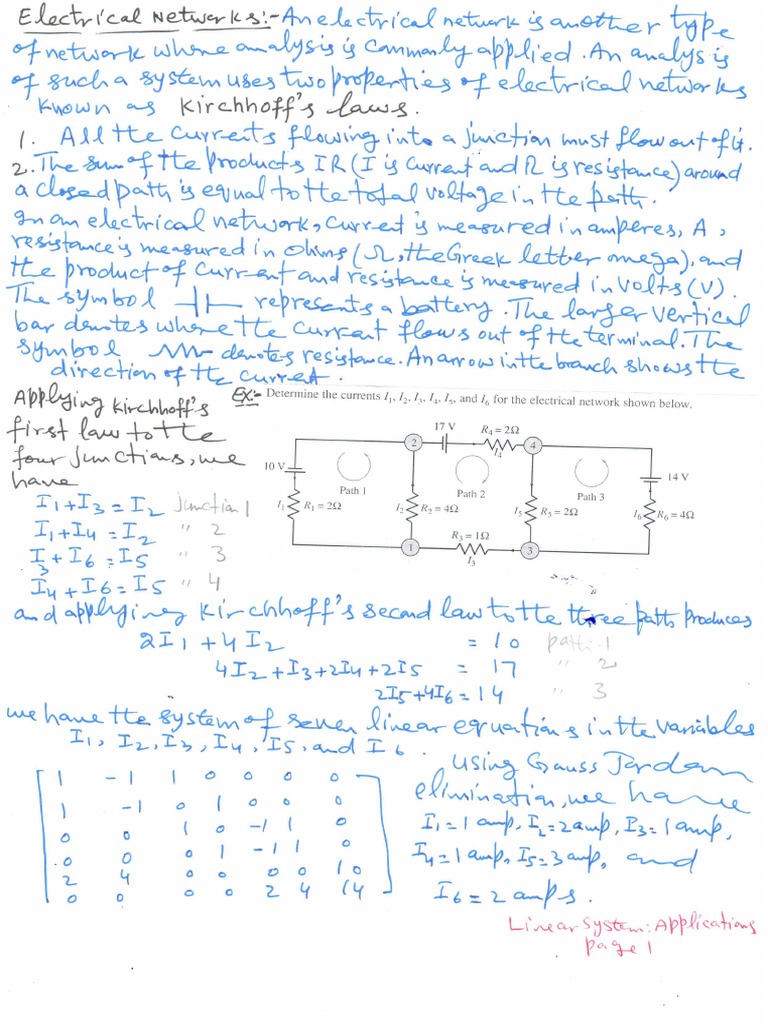 Electrical Networks:- An electrical network is another type
of network where analysis is commonly applied. An analysis
of such a system uses two properties of electrical networks
known as Kirchhoff's laws.
1. All the currents flowing into a junction must flow out of it.
2. The sum of the products IR (I is current and R is resistance) around
a closed path is equal to the total voltage in the path.
In an electrical network, current is measured in amperes, A,
resistance is measured in ohms (Ω, the Greek letter omega), and
the product of current and resistance is measured in volts (V).
The symbol represents a battery. The larger vertical
bar denotes where the current flows out of the terminal. The
symbol denotes resistance. An arrow in the branch shows the
direction of the current.
Applying Kirchhoff's
first law to the
four junctions, we
have
I1+I3=I2 junction 1
I1+I4=I2 " 2
I3+I6=I5 " 3
I4+I6=I5 " 4
EX:- Determine the currents I1, I2, I3, I4, I5, and I6 for the electrical network shown below.
17 V R4 = 2Ω
2 I4 4
10 V 14 V
Path 1 Path 2 Path 3
I1 R1 = 2Ω I2 R2 = 4Ω I5 R5 = 2Ω I6 R6 = 4Ω
R3 = 1Ω
1 I3 3
and applying Kirchhoff's second law to the three paths produces
2I1 + 4I2 = 10 path 1
4I2 + I3 + 2I4 + 2I5 = 17 " 2
2I5 + 4I6 = 14 " 3
we have the system of seven linear equations in the variables
I1, I2, I3, I4, I5, and I6.
1 -1 1 0 0 0 0
1 -1 0 1 0 0 0
0 0 1 0 -1 1 0
0 0 0 1 -1 1 0
2 4 0 0 0 0 10
0 0 0 0 2 4 14
using Gauss Jordan
elimination, we have
I1=1 amp, I2=2 amp, I3=1 amp,
I4=1 amp, I5=3 amp, and
I6=2 amps.
Linear System: Applications
page 1